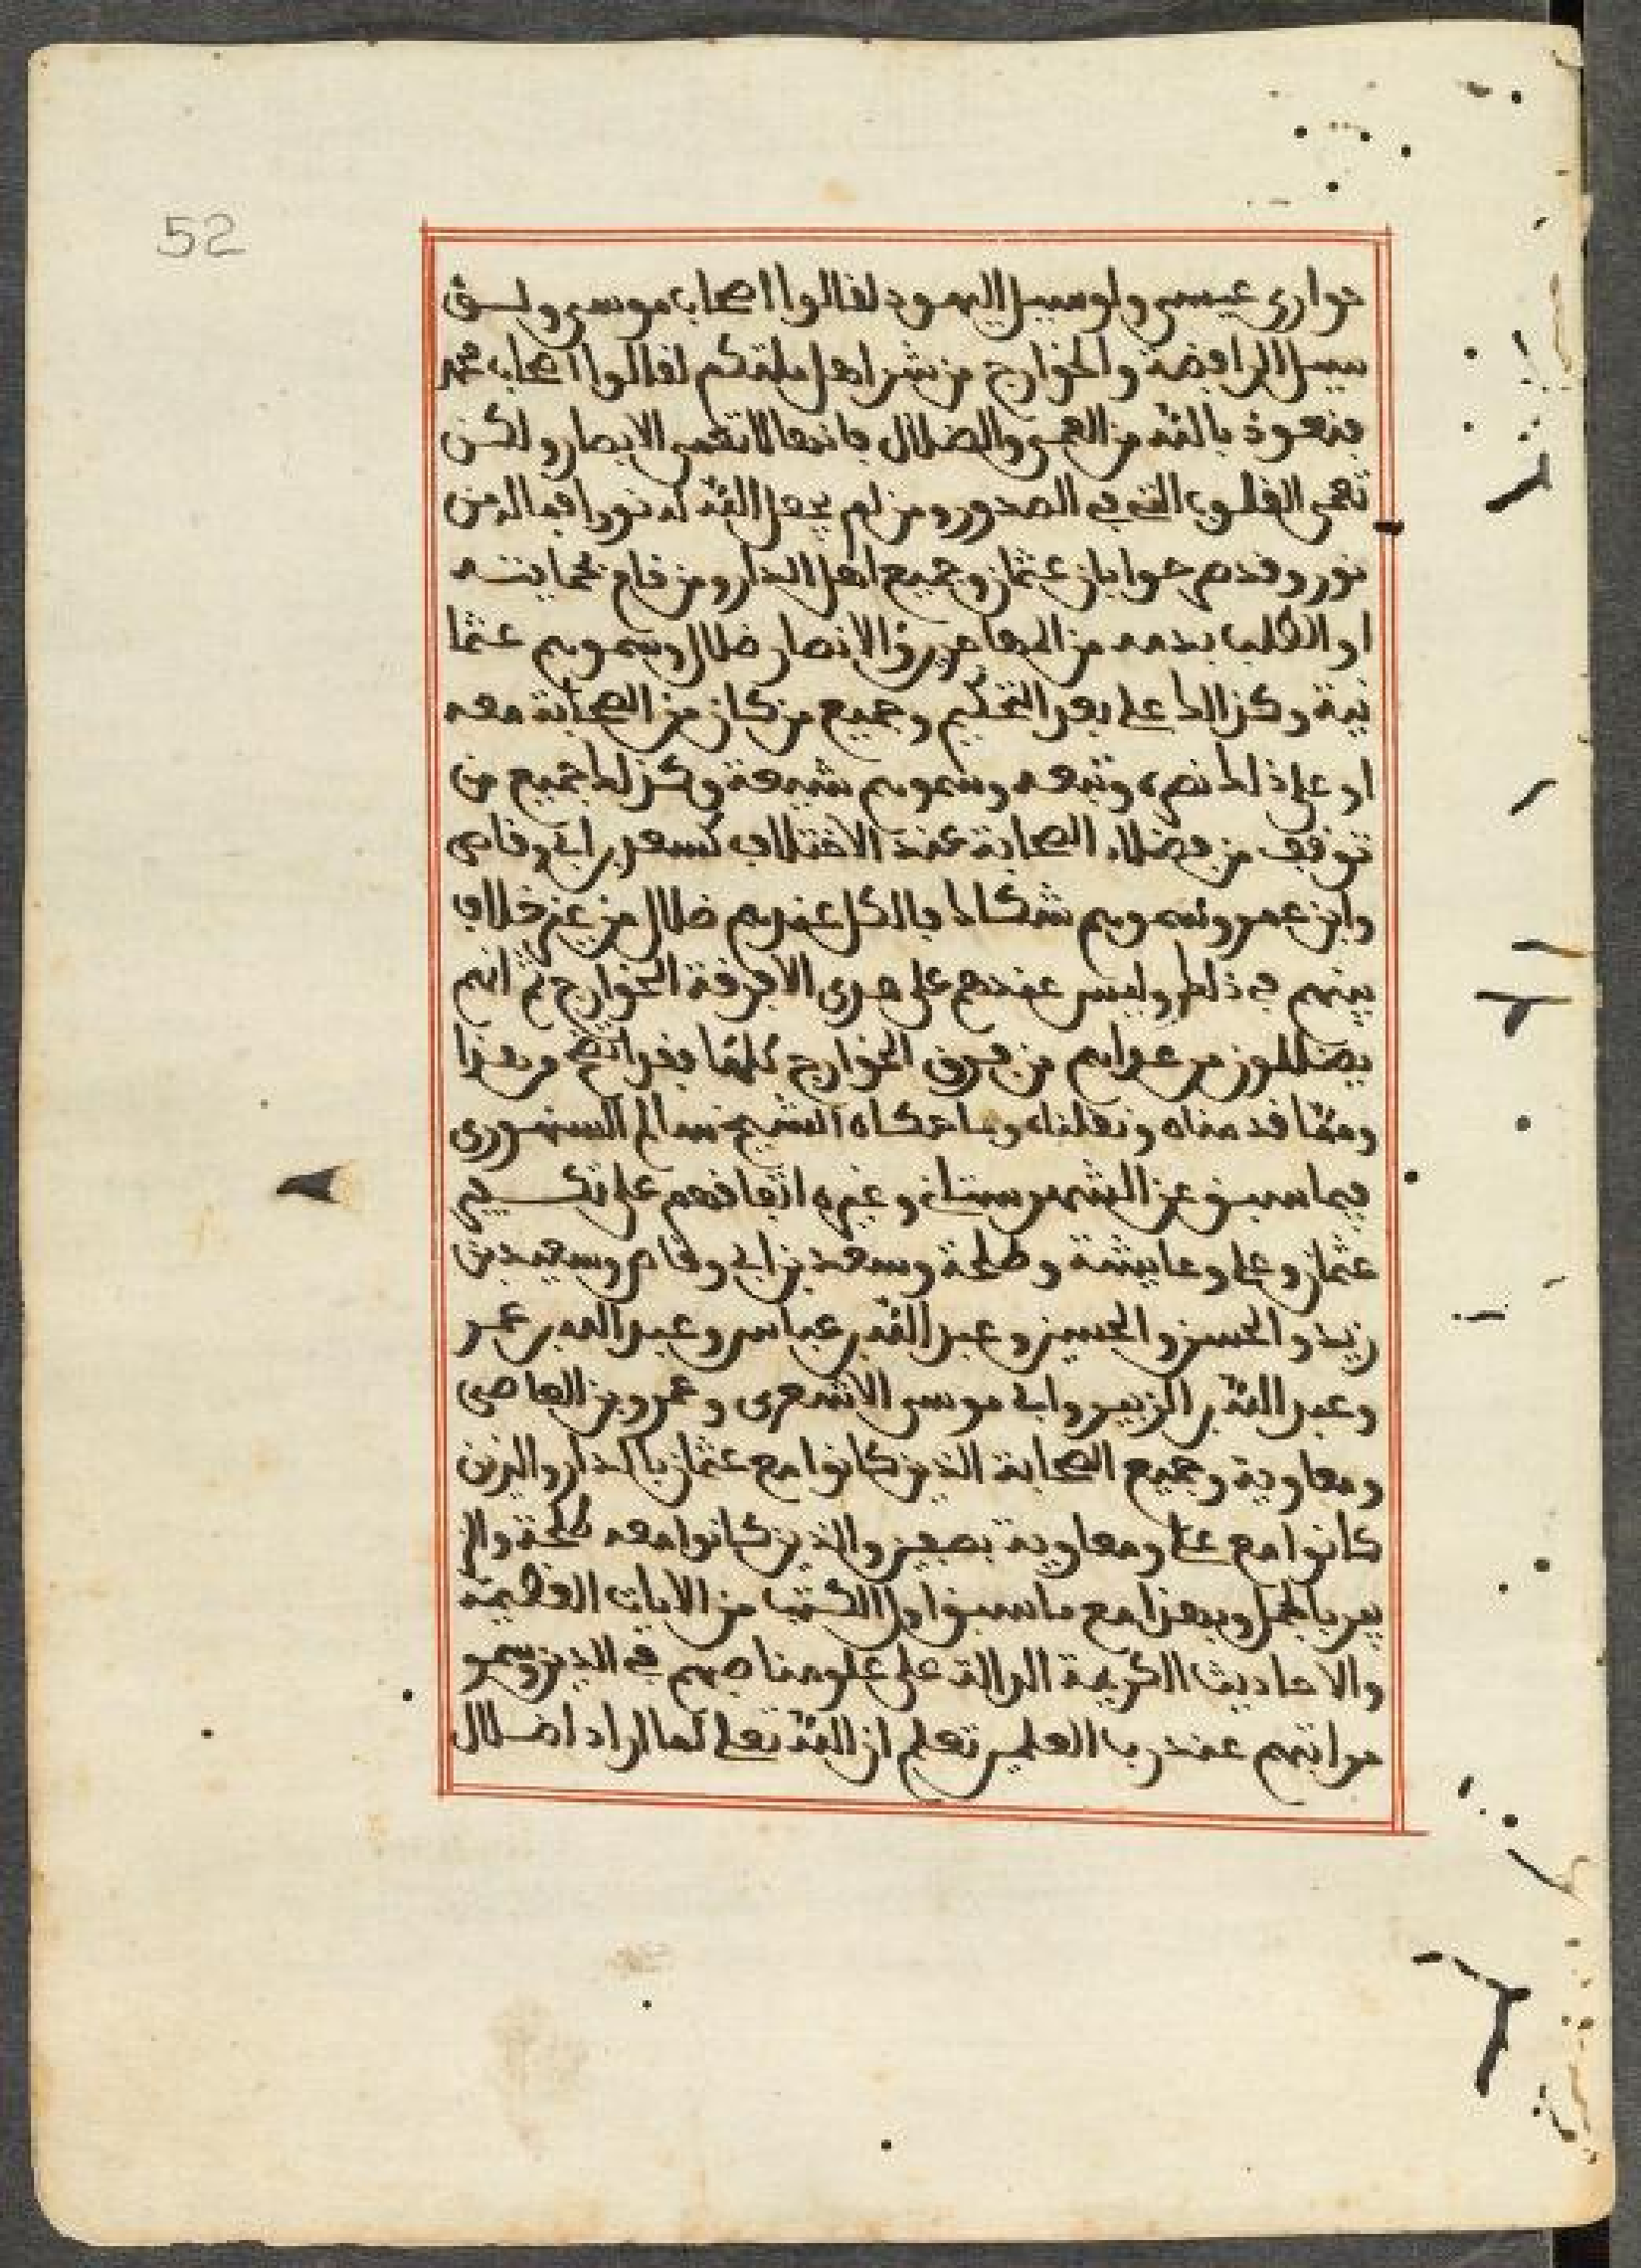 52
حوارى عيسى ولو سيل اليهود لقالوا اصحاب موسى ولو
سيل الرافضة والخوارج من شر اهل ملتكم لقالوا اصحاب محمد
فنعوذ بالله من العمى والضلال فانها لا تعمى الابصار ولكن
تعمى القلوب التى فى الصدور ومن لم يجعل الله له نورا فما له من
نور وقد صرحوا بان عثمان وجميع اهل الدار ومن قام بحمايته
او الطلب بدمه من المهاجرين والانصار ضلال وسموهم عثما
نية وكذلك على بعد التحكيم وجميع من كان من الصحابة معه
او على ذلك نصره وتبعه وسموهم شيعة وكذلك جميع من
توقف من فضلاء الصحابة عند الاختلاف كسعد بن ابى وقاص
وابن عمر وسموهم شكاكا فالكل عندهم ضلال من غير خلاف
بينهم فى ذلك وليس عندهم على هدى الا فرقة الخوارج ثم انهم
يضللون من عداهم من فرق الخوارج كلها فقد اتضح من هذا
ومما قدمناه ونقلناه وما حكاه الشيخ سالم السنهورى
فيما سبق عن الشهرستانى وغيره اتفاقهم على تكفير
عثمان وعلى وعايشة وطلحة وسعد بن ابى وقاص وسعيد بن
زيد والحسن والحسين وعبد الله بن عباس وعبد الله بن عمر
وعبد الله بن الزبير وابى موسى الاشعرى وعمرو بن العاصى
ومعاوية وجميع الصحابة الذين كانوا مع عثمان بالدار والذين
كانوا مع على ومعاوية بصفين والذين كانوا معه طلحة والز
بير بالجمل وبهذا مع ما سبق اول الكتب من الايات العظيمة
والاحاديث الكريمة الدالة على علو مناصبهم فى الدين وسمو
مراتبهم عند رب العلمين تعلم ان الله تعلى لما اراد اضلال